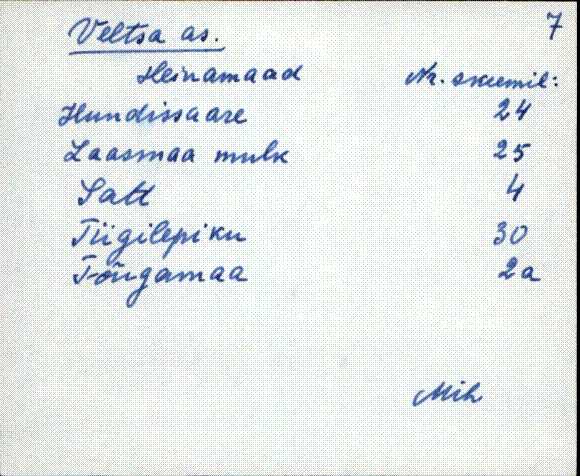 7
Veltsa as.
Heinamaad Nr. skeemil:
Hundissaare 24
Laasmaa mulk 25
Salt 4
Tiigilepiku 30
Tõugamaa 2a
Mih